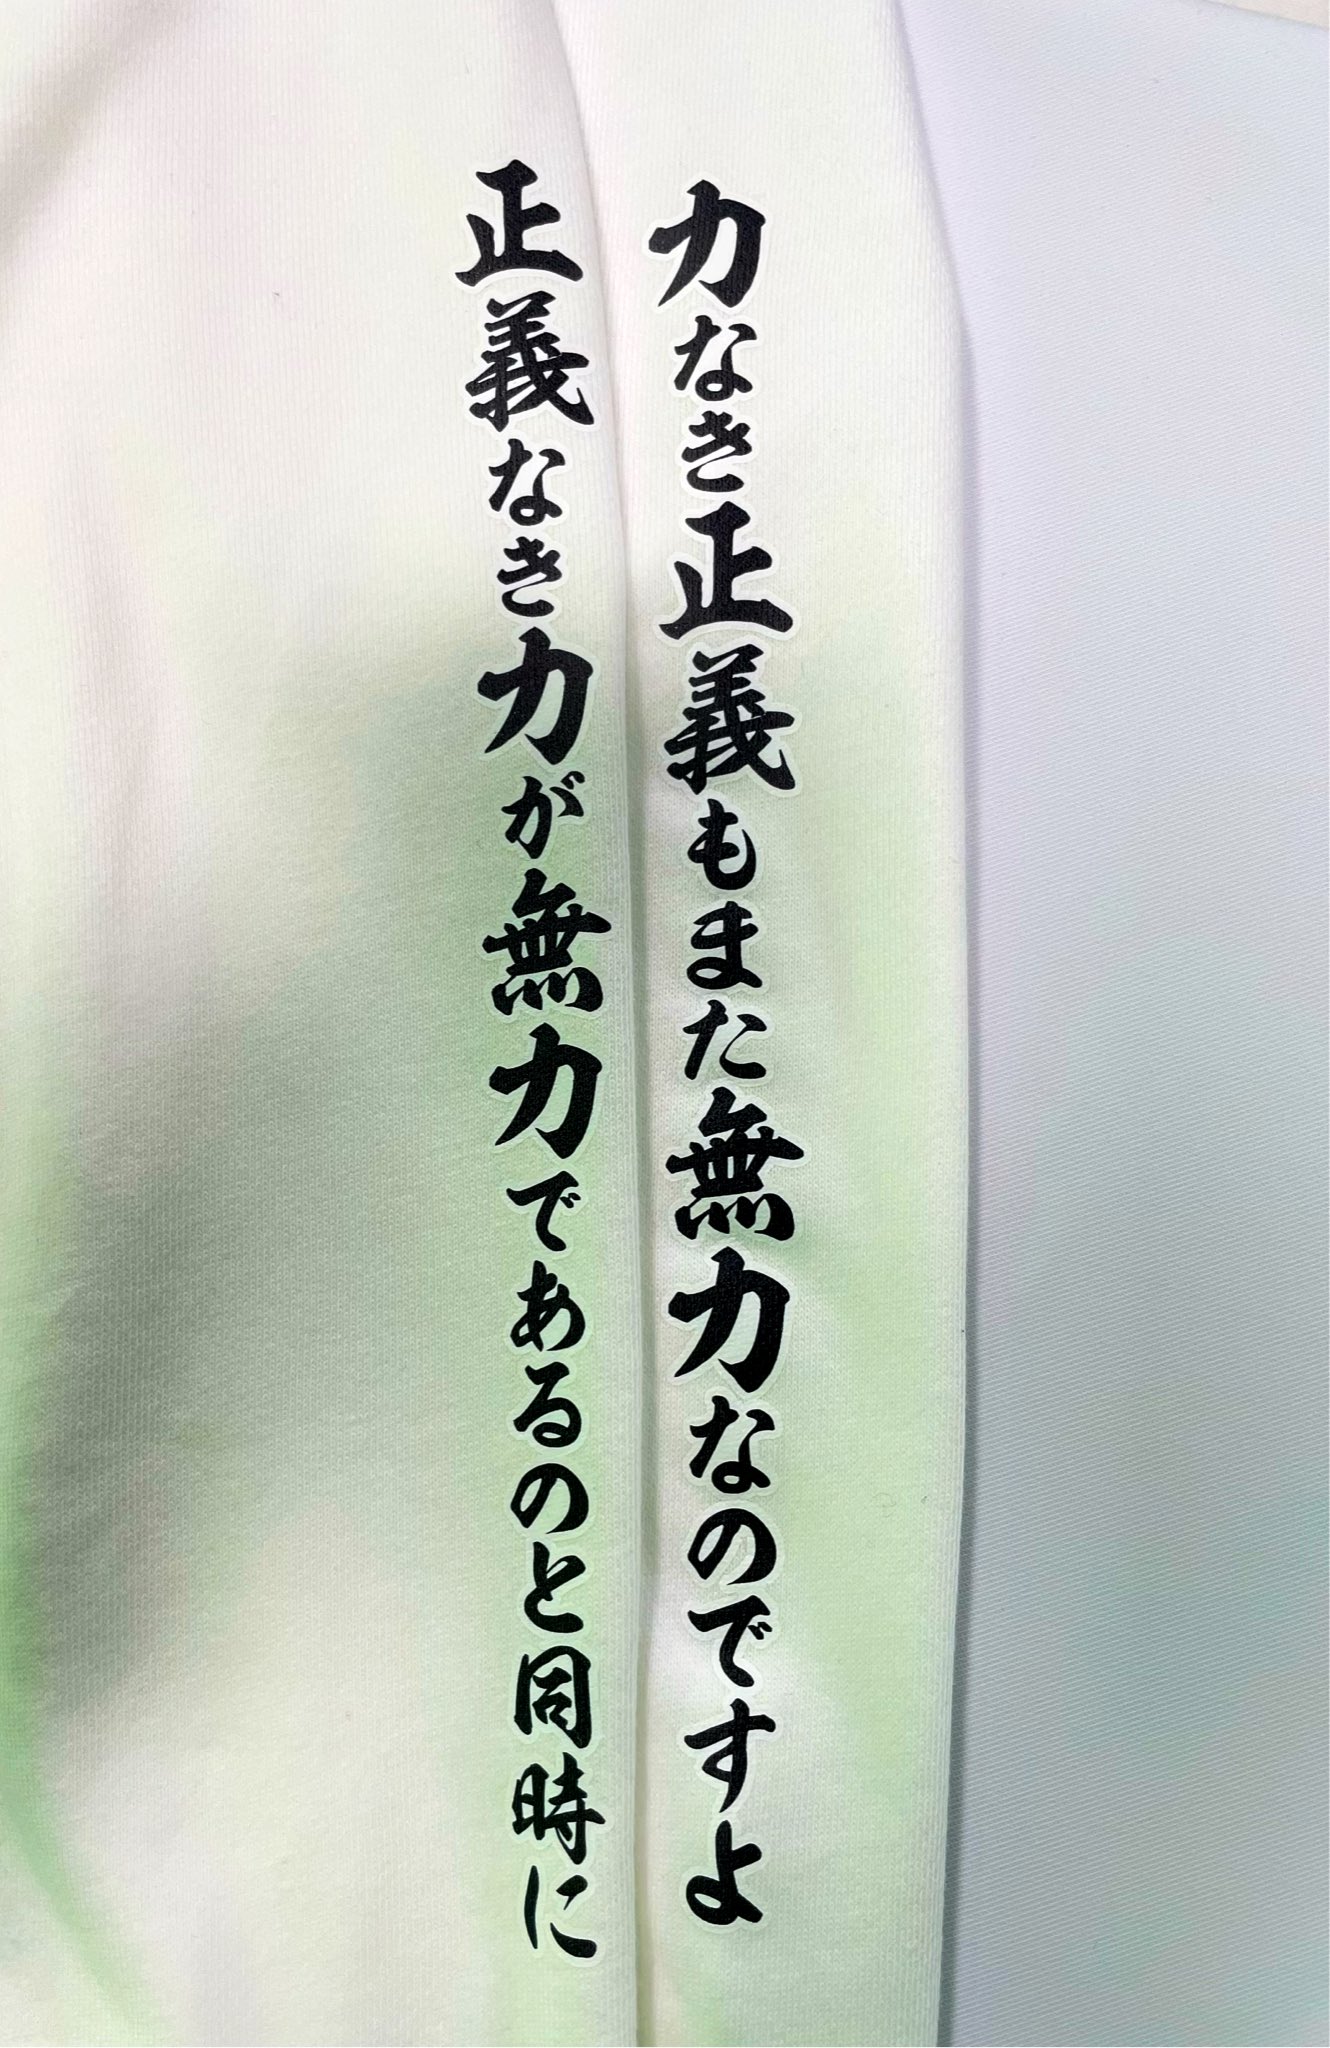 力なき正義もまた無力なのですよ
正義なき力が無力であるのと同時に